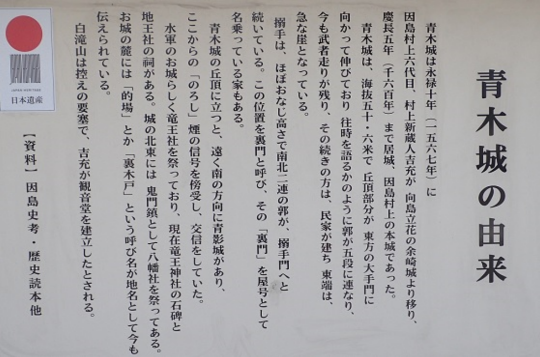 青木城の由来
青木城は永禄十年(一五六七年)に
因島村上六代目、村上新蔵人吉充が 向島立花の余崎城より移り、
慶長五年(千六百年)まで居城、因島村上の本城であった。
青木城は、海抜五十・六米で 丘頂部分が 東方の大手門に
向かって伸びており 往時を語るかのように郭が五段に連なり、
今も武者走りが残り、その続きの方は、民家が建ち 東端は、
急な崖となっている。
搦手は、ほぼおなじ高さで南北二連の郭が、搦手門へと
続いている。この位置を裏門と呼び、その「裏門」を屋号として
名乗っている家もある。
青木城の丘頂に立つと、遠く南の方向に青影城があり、
ここからの「のろし」煙の信号を傍受し、交信をしていた。
水軍のお城らしく竜王社を祭っており、現在竜王神社の石碑と
地王社の祠がある。城の北東には 鬼門鎮として八幡社を祭ってある。
お城の麓には「的場」とか「裏木戸」という呼び名が地名として今も
伝えられている。
白滝山は控えの要塞で、吉充が観音堂を建立したとされる。
【資料】因島史考・歴史読本他
JAPAN HERITAGE
日本遺産